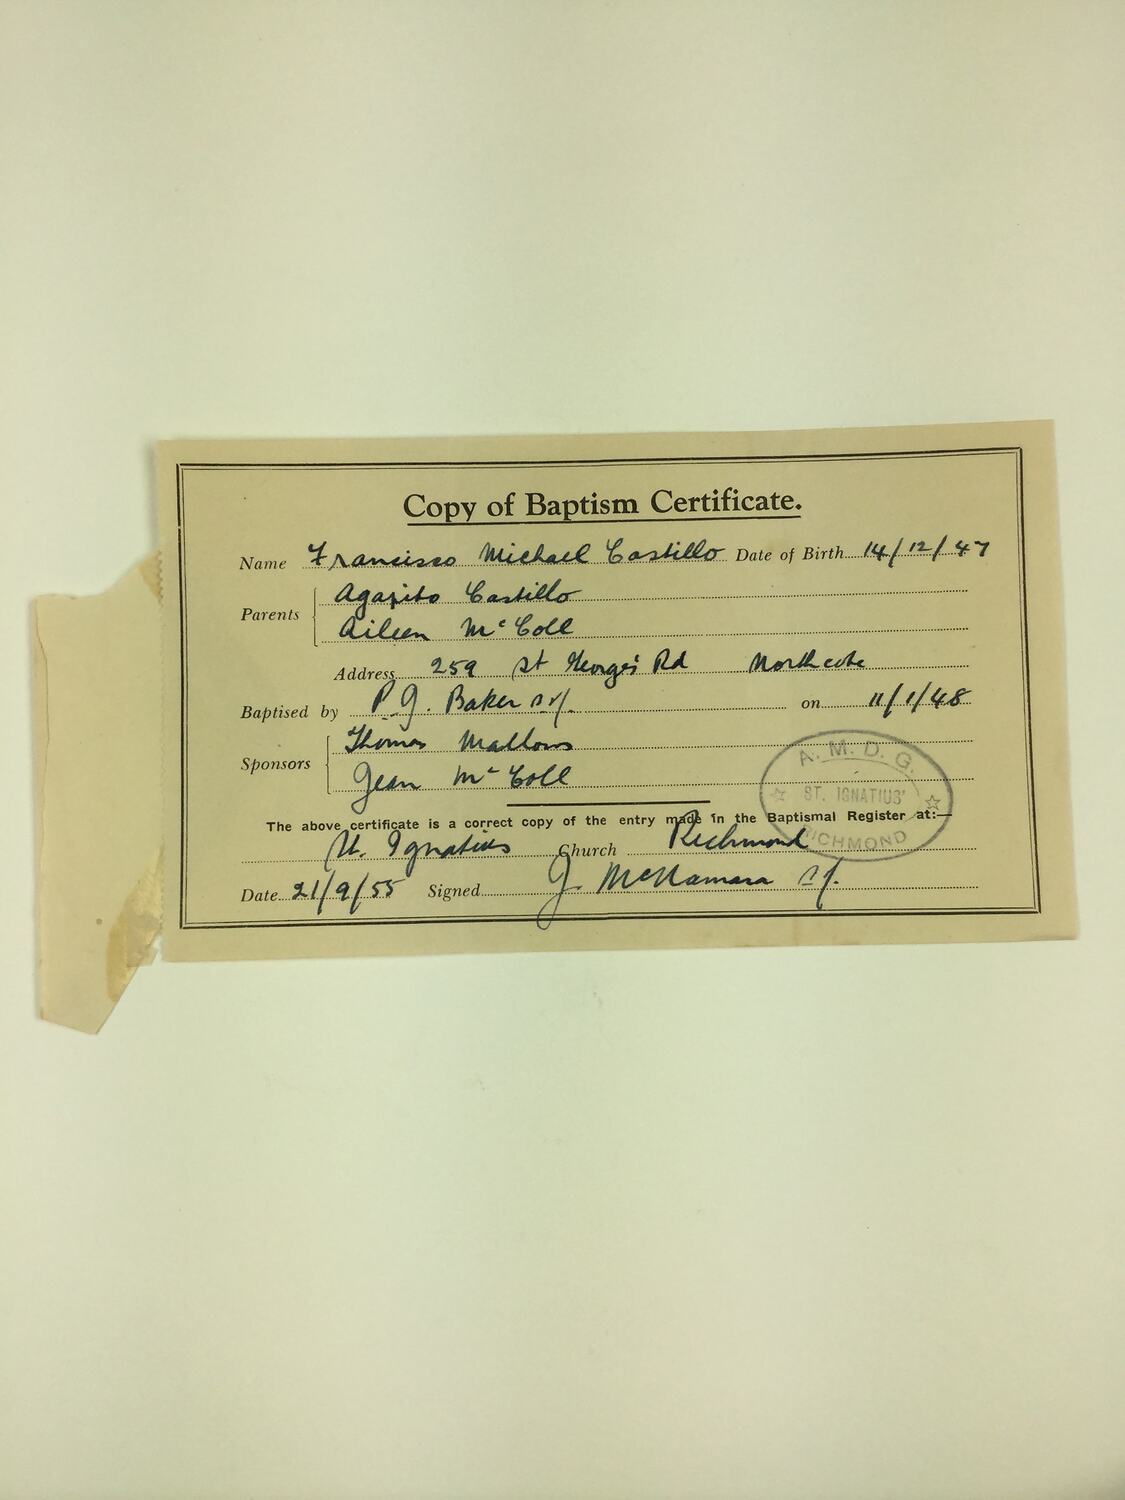 Copy of Baptism Certificate.
Name Francisco Michael Castillo Date of Birth 14/12/47
Parents Agapito Castillo
Aileen McColl
Address 259 St George's Rd Northcote
Baptised by P.J. Baker S.J. on 11/1/48
Sponsors Thomas Mallows
Jean McColl
A. M. D. G.
ST. IGNATIUS'
RICHMOND
The above certificate is a correct copy of the entry made in the Baptismal Register at:—
St. Ignatius Church Richmond
Date 21/9/55 Signed J. McNamara S.J.